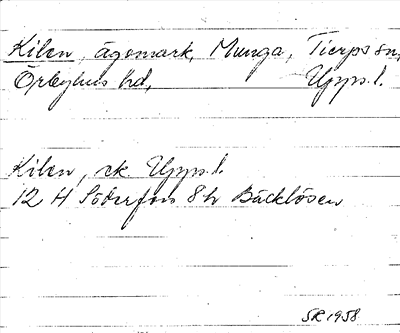 Kilen, ägomark, Munga, Tierps sn,
Örbyhus hd, Upps.l.
Kilen, ek. Upps.l.
12 H Söderfors 8 h Bäcklösen
SR 1958